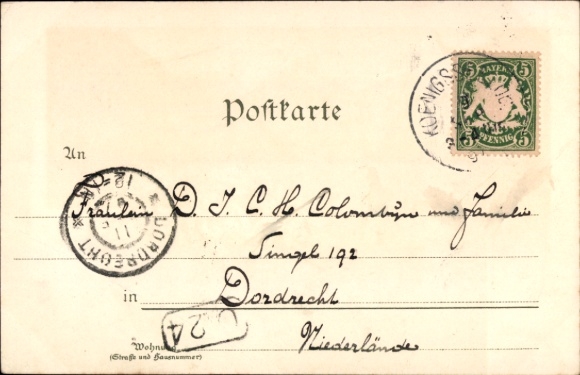 Postkarte
BAYERN
5 5
5 5
PFENNIG
An
Fräulein D. J. C. H. Colombijn und Familie
Singel 192
in Dordrecht
Niederlände
Wohnung
(Straße und Hausnummer)
DORDRECHT
24